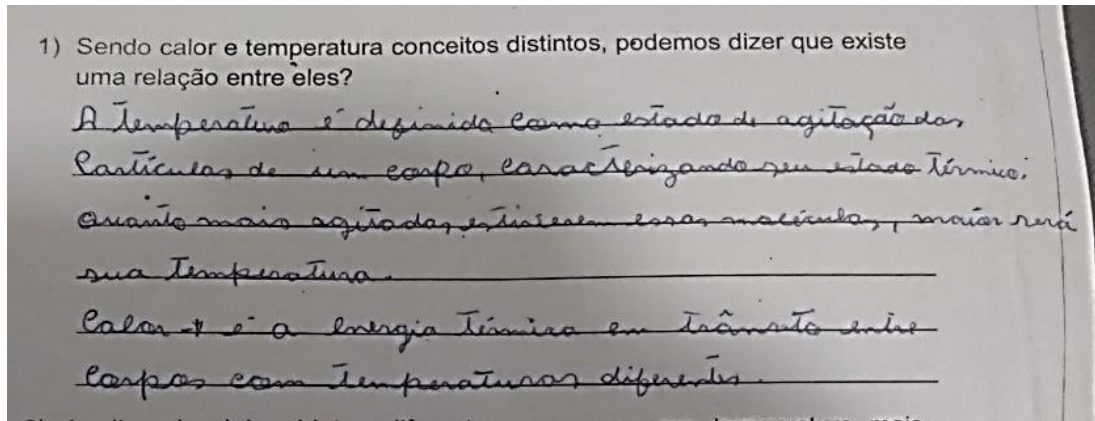 1) Sendo calor e temperatura conceitos distintos, podemos dizer que existe
uma relação entre eles?
A Temperatura é definida como estado de agitação das
Partículas de um corpo, caracterizando seu estado Térmico.
Quanto mais agitadas estiverem essas moléculas, maior será
sua Temperatura.
Calor → é a Energia Térmica em Trânsito entre
Corpos com Temperaturas diferentes.